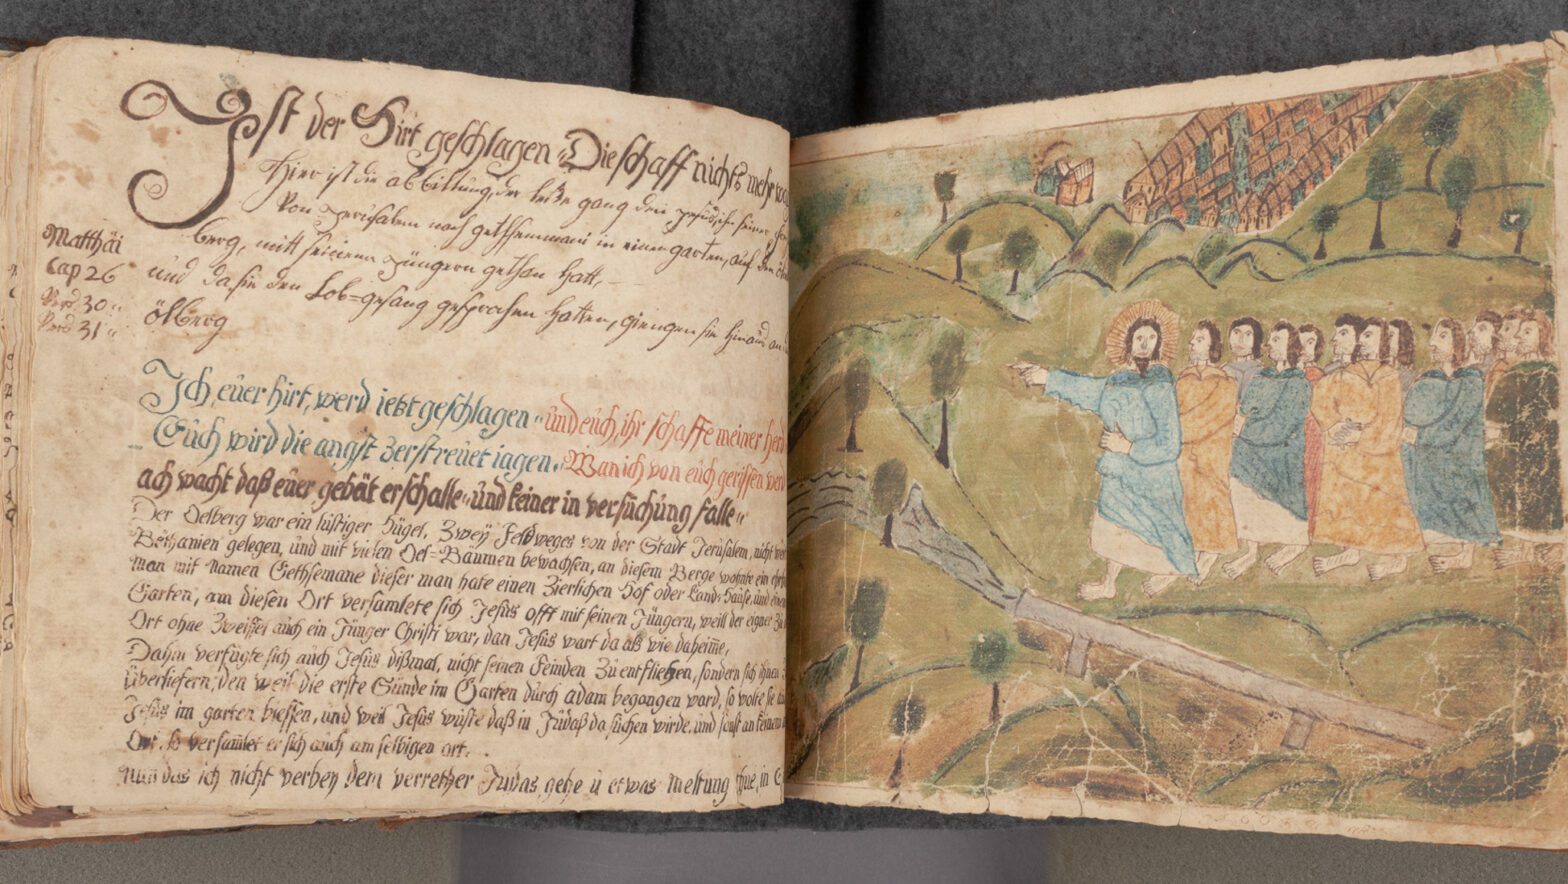 Ist der Hirt geschlagen, Die schaff nichts mehr
Hier ist die abbildung, der letze gang den Jesus, in seiner
Von Jerusalem nach gethsemmani in einen garten, auf den
berg, mitt seinen Jüngern gethan hatt,
Matthäi
Cap 26
Vers 30
Vers 31
und da sie den Lob=gesang gesprochen hatten, giengen sie hinaus an
ölberg
Ich, euer hirt, werd ietzt geschlagen, und euch, ihr schaffe meiner herd
Euch wird die angst zerstreuet iagen, Wan ich von euch gerissen werd
ach wacht daß euer gebät erschalle, und keiner in versuchung falle
Der Oelberg war ein lustiger Hügel, Zweÿ Feldweges von der Stadt Jerusalem, nicht
Bethanien gelegen, und mit vielen Oel-Bäumen bewachsen, an diesem Berge wohnte ein
man mit Namen Gethsemane dieser man hate einen Zierlichen Hof oder Land-Hause, und einen
Garten, an diesen Ort versamlete sich Jesus offt mit seinen Jüngern, weill der eigner
Ort ohne Zweiffel auch ein Jünger Christi war, dan Jesus wart da als wie daheime,
Dahin verfügte sich auch Jesus dißmal, nicht seinen Feinden Zu entfliehen, sondern sich ihnen
überliefern, den weil die erste Sünde im Garten durch adam begangen ward, so wolte sie
Jesus im garten büessen, und weil Jesus wuste daß in Judas da suchen würde, und sonst an keinem
Ort. so versamlet er sich auch am selbigen ort.
Nun das ich nicht verbey dem verrether Judas gehe u etwas meltung thue, in